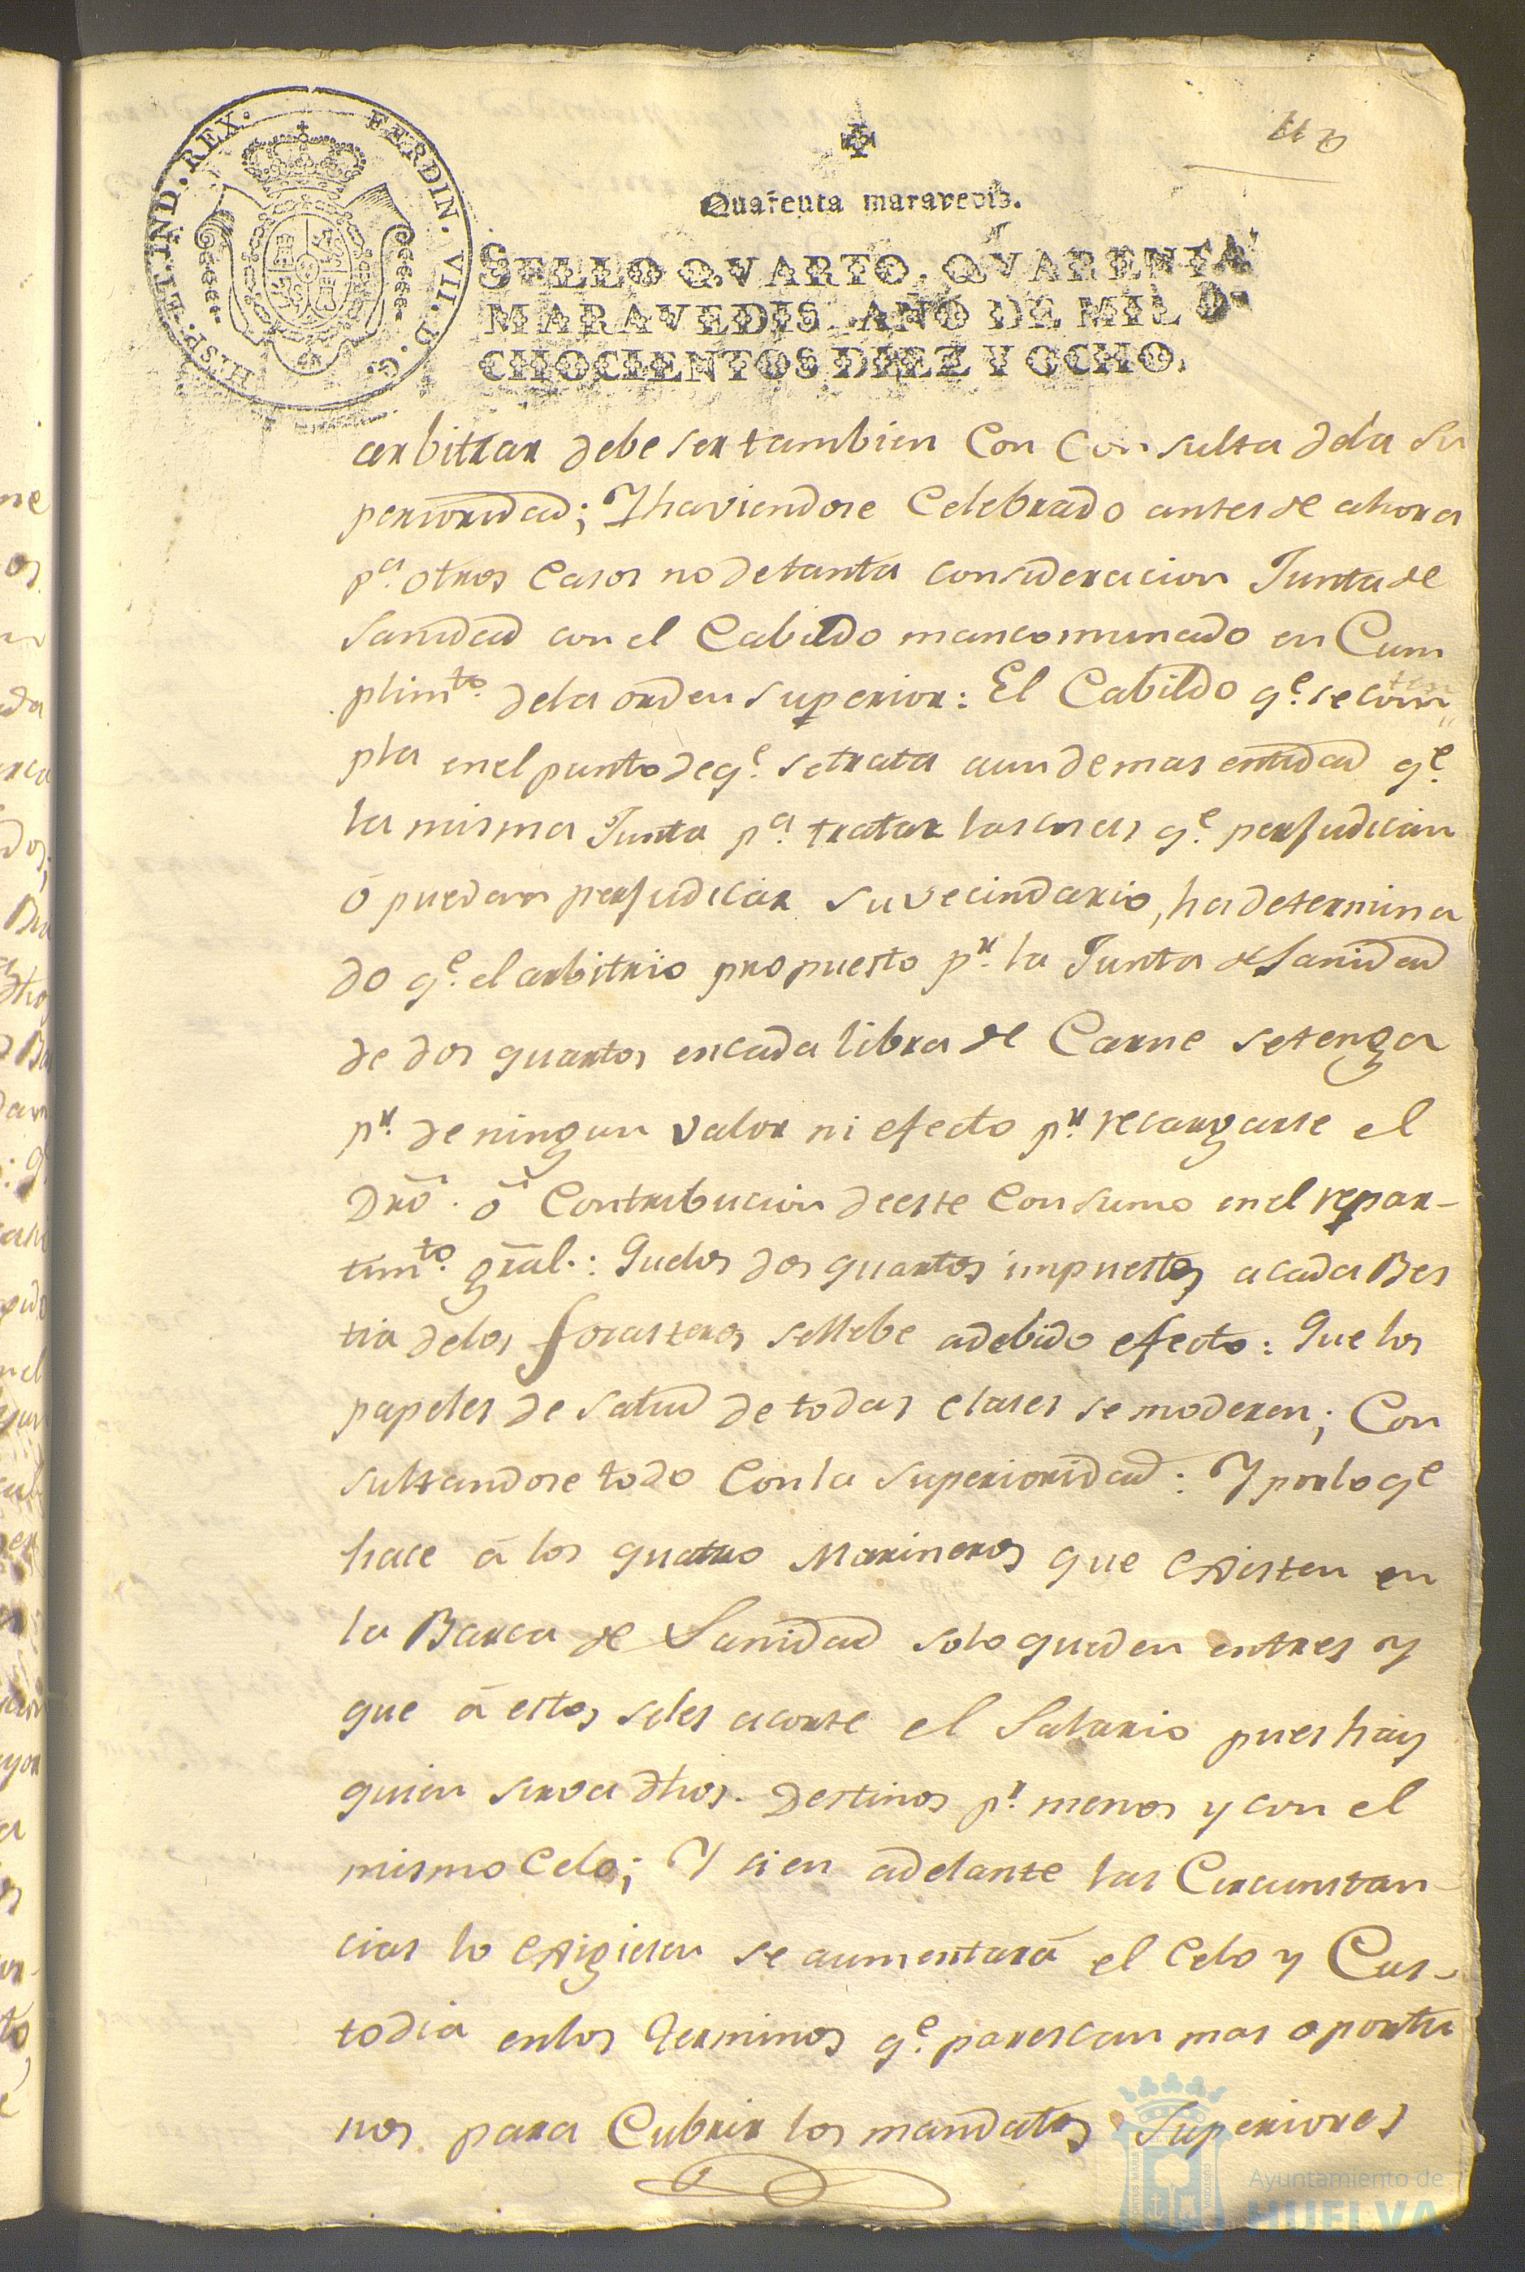 HISP. ET. IND. REX. FERDIN. VII. D. G.
Quarenta maravedis.
SELLO QVARTO, QVARENTA
MARAVEDIS, AÑO DE MIL O-
CHOCIENTOS DIEZ Y OCHO.
arbitrar debe ser tambien con consulta dela Su
perioridad; Y haviendose Celebrado antes de ahora
pa. otros casos no de tanta consideracion Junta de
Sanidad con el Cabildo mancomunado en Cum
plimto. dela orden superior: El Cabildo qe. se contem
pla en el punto de qe. se trata aun de mas entidad qe.
la misma Junta pa. tratar las cosas qe. perjudican
ó puedan perjudicar su vecindario, ha determina
do qe. el arbitrio propuesto pr. la Junta de Sanidad
de dos quartos en cada libra de Carne se tenga
pr. de ningun valor ni efecto pr. recargarse el
Dro. ó Contribucion de este Consumo en el repar-
timto. gral.: Que los dos quartos impuestos a cada Bes
tia de los forasteros se llebe a debido efecto: Que los
papeles de salud de todas clases se moderen; Con
sultandose todo con la superioridad: Y por lo qe
hace á los quatro Marineros que existen en
la Barca de Sanidad solo queden en tres y
que á estos se les acorte el Salario pues hay
quien sirva dhos. Destinos pr. menos y con el
mismo Celo; Y si en adelante las Circunstan-
cias lo exigiesen se aumentará el Celo y Cus-
todia en los terminos qe. parescan mas oportu
nos para Cubrir los mandatos Superiores
Ayuntamiento de
HUELVA